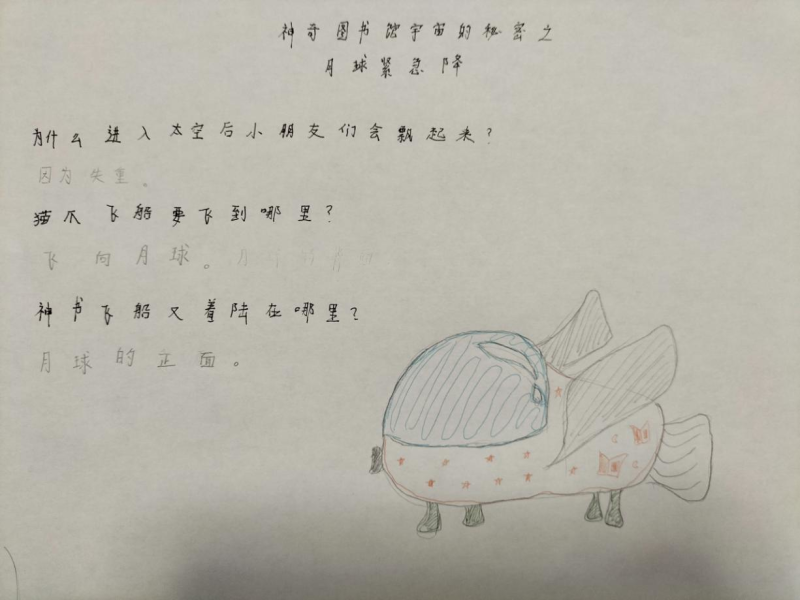 神奇图书馆宇宙的秘密之
月球紧急降
为什么进入太空后小朋友们会飘起来?
因为失重。
猫爪飞船要飞到哪里?
飞向月球。月球的背面
神书飞船又着陆在哪里?
月球的正面。